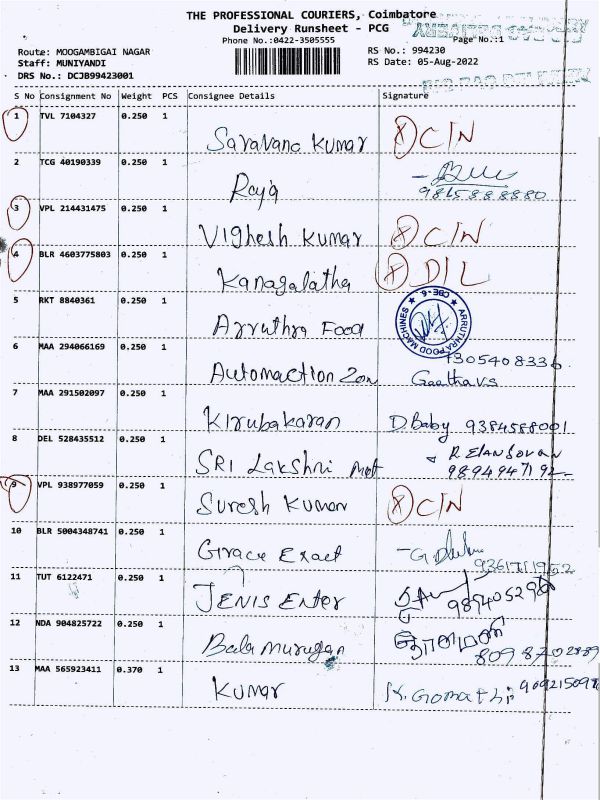 THE PROFESSIONAL COURIERS, Coimbatore
Delivery Runsheet - PCG
Phone No.:0422-3505555
Page No.:1
Route: MOOGAMBIGAI NAGAR
RS No.: 994230
Staff: MUNIYANDI
RS Date: 05-Aug-2022
DRS No.: DCJB99423001
S No Consignment No Weight PCS Consignee Details Signature
1 TVL 7104327 0.250 1 Saravana Kumar X C/N
2 TCG 40190339 0.250 1 Raja
9815888880
3 VPL 214431475 0.250 1 Vighesh Kumar X C/N
4 BLR 4603775803 0.250 1 Kanagalatha X D/L
5 RKT 8840361 0.250 1 Arruthra Food
ARRUTHRA FOOD MACHINES ★ CBE-6 ★
6 MAA 294066169 0.250 1 Automaction Zon
7305408336
7 MAA 291502097 0.250 1 Kirubakaran D Baby 9384588001
8 DEL 528435512 0.250 1 SRI Lakshmi
9894947192
9 VPL 938977059 0.250 1 Suresh Kumar X C/N
10 BLR 5004348741 0.250 1 Grace Exact
9361711952
11 TUT 6122471 0.250 1 JENIS Enter
12 NDA 904825722 0.250 1 Bala murugan
8098702889
13 MAA 565923411 0.370 1 Kumar K. Gomathi